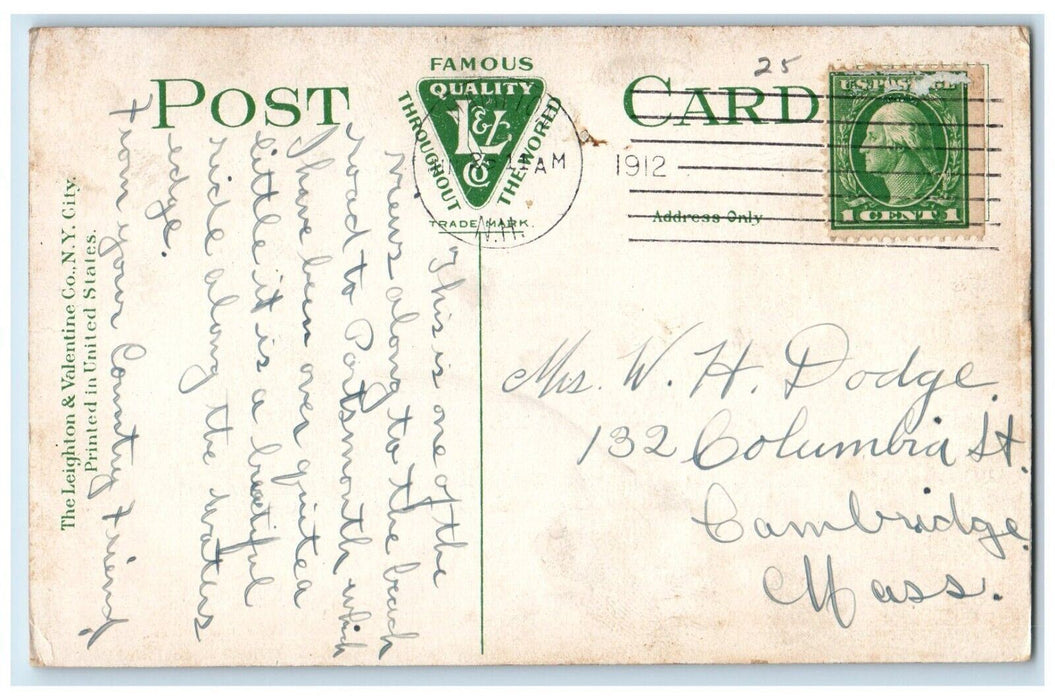 25
POST CARD
FAMOUS
QUALITY
THROUGHOUT
THE WORLD
L&V
Co
TRADE MARK.
AM
N.H.
1912
U.S. POSTAGE
1 CENT 1
Address Only
This is one of the
views along to the beach
road to Portsmouth which
I have been over quite a
little it is a beautiful
ride along the waters
edge.
From your Country Friend
Mrs. W. H. Dodge
132 Columbia St.
Cambridge
Mass.
The Leighton & Valentine Co., N.Y. City.
Printed in United States.